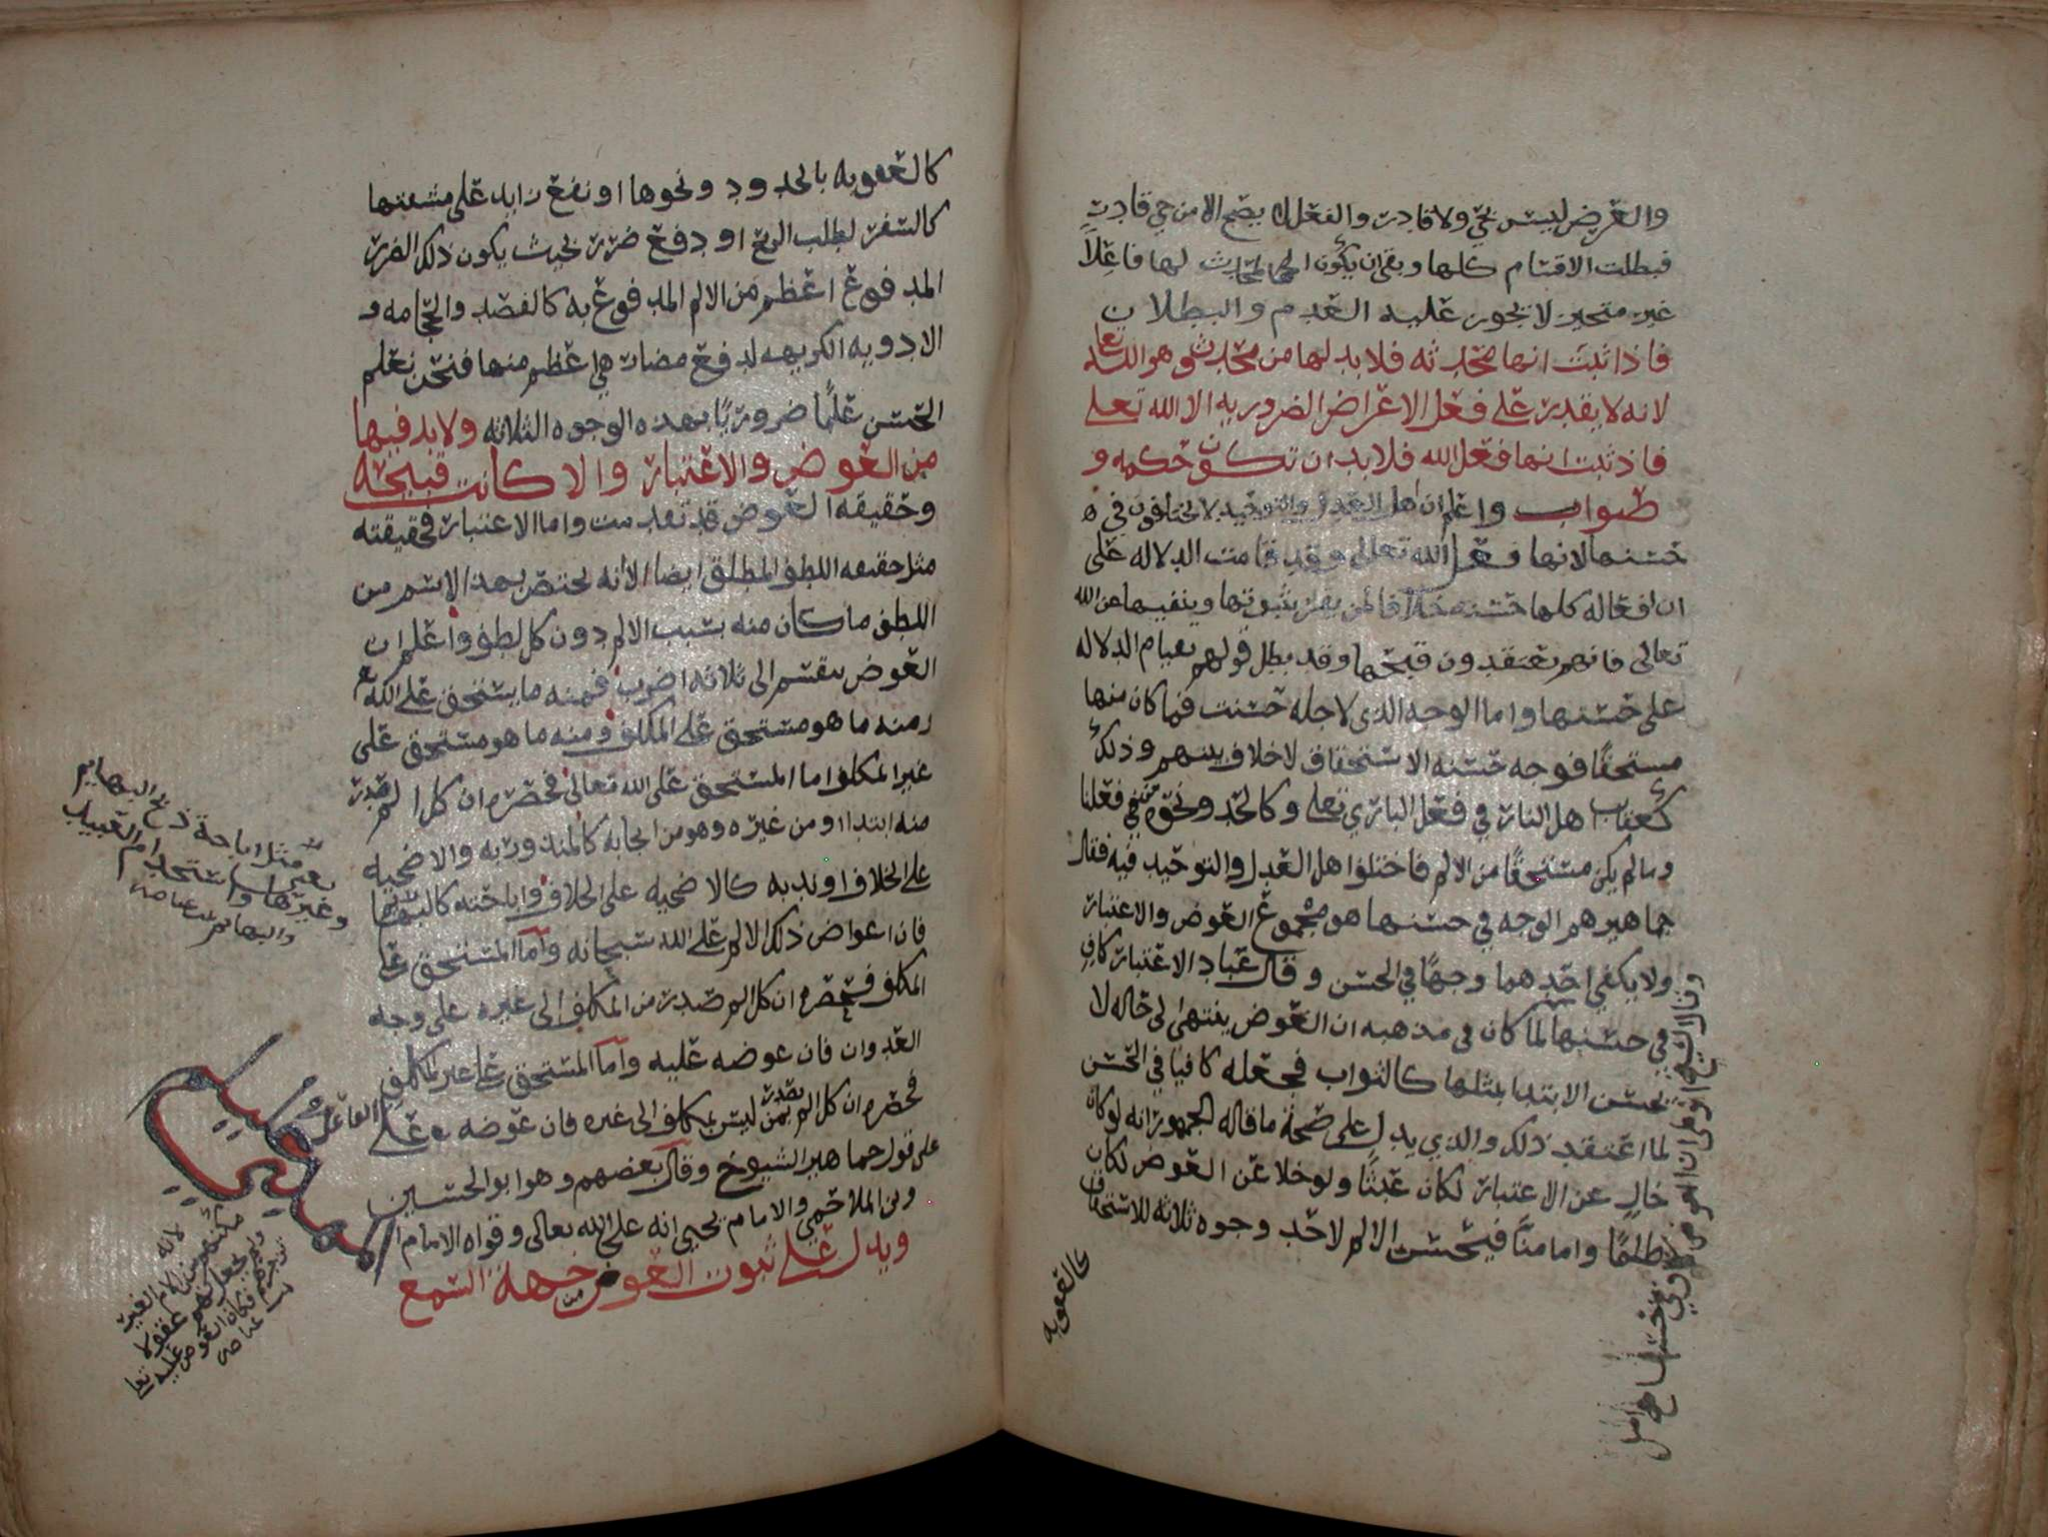 والعرض ليس بحي ولا قادر والفعل لا يصح الا من حي قادر
فبطلت الاقسام كلها وبقي ان يكون المحدث لها فاعلا
غير متحيز لا يجوز عليه العدم والبطلان
فاذا ثبت انها محدثه فلا بد لها من محدث وهو الله تعا
لانه لا يقدر على فعل الاعراض الضروريه الا الله تعلى
فاذ ثبت انها فعل الله فلا بد ان تكون حكمه و
صواب واعلم ان اهل العدل والتوحيد لا يختلفون في
حسنها لانها فعل الله تعالى وقد قامت الدلاله على
ان افعاله كلها حسنه خلافا لمن يقول بثبوتها وينفيها عن الله
تعالى فانهم يعتقدون قبحها وقد بطل قولهم بقيام الدلاله
على حسنها واما الوجه الذى لاجله حسنت فما كان منها
مستحقا فوجه حسنه الاستحقاق لا خلاف بينهم وذلك
كعقاب اهل النار في فعل الباري تعلى وكالحد ونحوه في فعلنا
وما لم يكن مستحقا من الالم فاختلوا اهل العدل والتوحيد فيه فقال
جماهيرهم الوجه في حسنها هو مجموع العوض والاعتبار
ولا يكفي احدهما وجها في الحسن وقال عباد الاعتبار كاف
في حسنها لما كان في مذهبه ان العوض ينتهى الى حاله لا
يحسن الابتدا بمثلها كالثواب فجعله كافيا في الحسن
لما اعتقد ذلك والذي يدل على صحة ما قاله الجمهور انه لو كان
خال عن الاعتبار لكان عبثا ولو خلا عن العوض لكان
ظلما واما منا فيحسن الالم لاحد وجوه ثلاثه للاستحقاق
كالعقوبه
كالعقوبه بالحدود ونحوها او نفع زايد على مشقتها
كالسفر لطلب الربح او دفع ضرر بحيث يكون ذلك الضرر
المدفوع اعظم من الالم المدفوع به كالفصد والحجامه و
الادويه الكريهه لدفع مضار هي اعظم منها فنحن نعلم
الحسن علما ضروريا بهذه الوجوه الثلاثه ولا بد فيها
من العوض والاعتبار والا كانت قبيحه
وحقيقه العوض قد تقدمت واما الاعتبار فحقيقته
مثل حقيقه اللطف المطلق ايضا الا انه يختص بهذا الاسم من
اللطف ما كان منه بسبب الالم دون كل لطف واعلم ان
العوض ينقسم الى ثلاثه اضرب فمنه ما يستحق على الله تع
ومنه ما هو مستحق على المكلف ومنه ما هو مستحق على
غير المكلف اما المستحق على الله تعالى فحصره ان كل الم صدر
منه ابتدا او من غيره وهو من ايجابه كالمنذور به والاضحيه
على الخلاف او ندبه كالاضحيه على الخلاف واباحته كالبهايم
فان اعواض ذلك الالم على الله سبحانه واما المستحق على
المكلف فحصره ان كل الم صدر من المكلف الى غيره على وجه
العدوان فان عوضه عليه واما المستحق على غير المكلف
فحصره ان كل الم يصدر ممن ليس بمكلف الى غيره فان عوضه على
على قول جماهير الشيوخ وقال بعضهم وهو ابو الحسين
وبن الملاحمي والامام يحيى انه على الله تعالى وقواه الامام
ويدل على ثبوت العوض من جهة السمع
مثل اباحة ذبح البهايم
وغيرها واستخدام العبيد
والبهايم
لانه
مكنهم من ايلام الغير
ولم يجعل لهم عقولا
فكان العوض عليه تعا